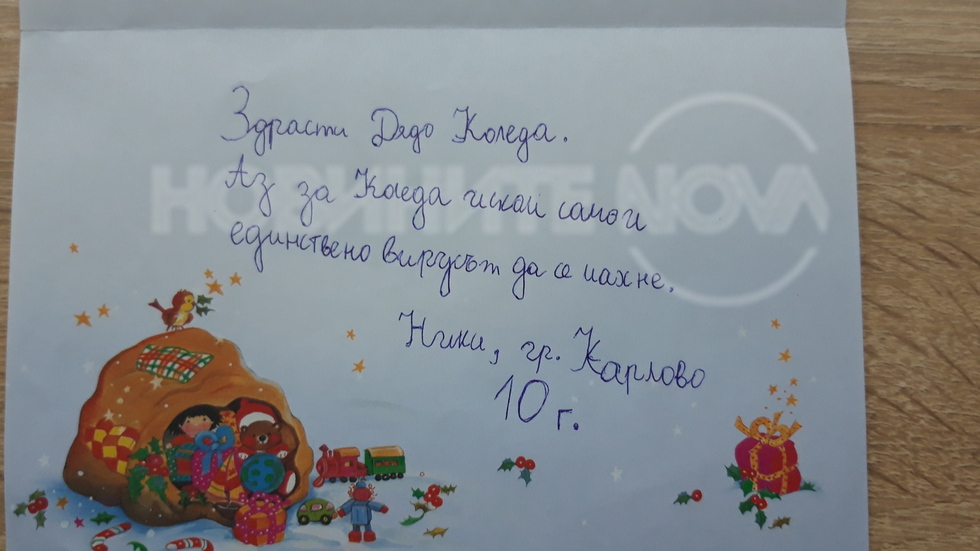 Здрасти Дядо Коледа.
Аз за Коледа искам само и
единствено вирусът да се махне.
Ники, гр. Карлово
10 г.
НОВИНИТЕ NOVA